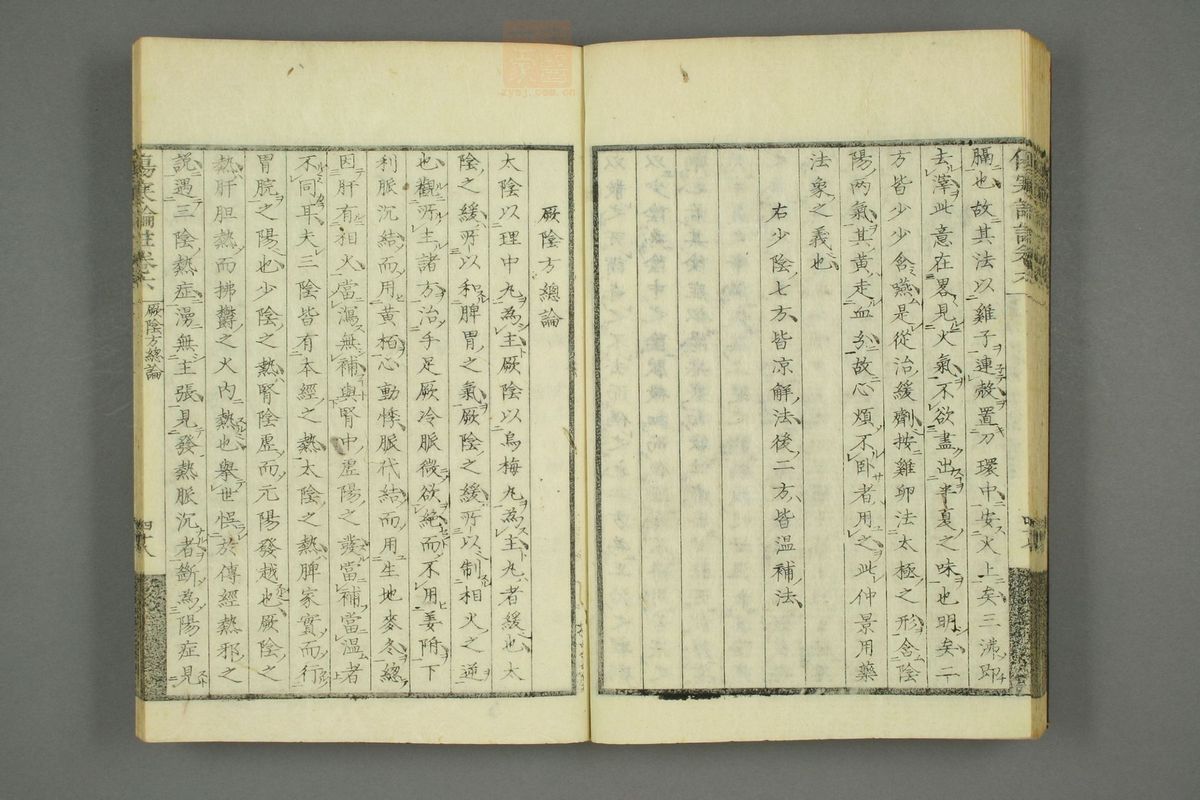 膈也故其法以雞子連殼置刀環中安火上矣三沸即
去滓此意在畧見火氣不欲盡出半夏之味也明矣二
方皆少少含嚥是從治緩劑按雞卵法太極之形含陰
陽兩氣其黃走血分故心煩不卧者用之此仲景用藥
法象之義也
右少陰七方皆凉解法後二方皆温補法
厥陰方總論
太陰以理中丸為主厥陰以烏梅丸為主丸者緩也太
陰之緩所以和脾胃之氣厥陰之緩所以制相火之逆
也觀所主諸方治手足厥冷脈微欲絶而不用姜附下
利脈沉結而用黄栢心動悸脈代結而用生地麥冬總
因肝有相火當瀉無補與腎中虛陽之發當補當温者
不同耳夫三陰皆有本經之熱太陰之熱脾家實而行
胃脘之陽也少陰之熱腎陰虛而元陽發越也厥陰之
熱肝胆熱而拂欝之火内熱也舉世悞於傳經熱邪之
説遇三陰熱症漫無主張見發熱脈沉者斷為陽症見
傷寒論註卷六
厥陰方總論
四十八
zysj.com.cn